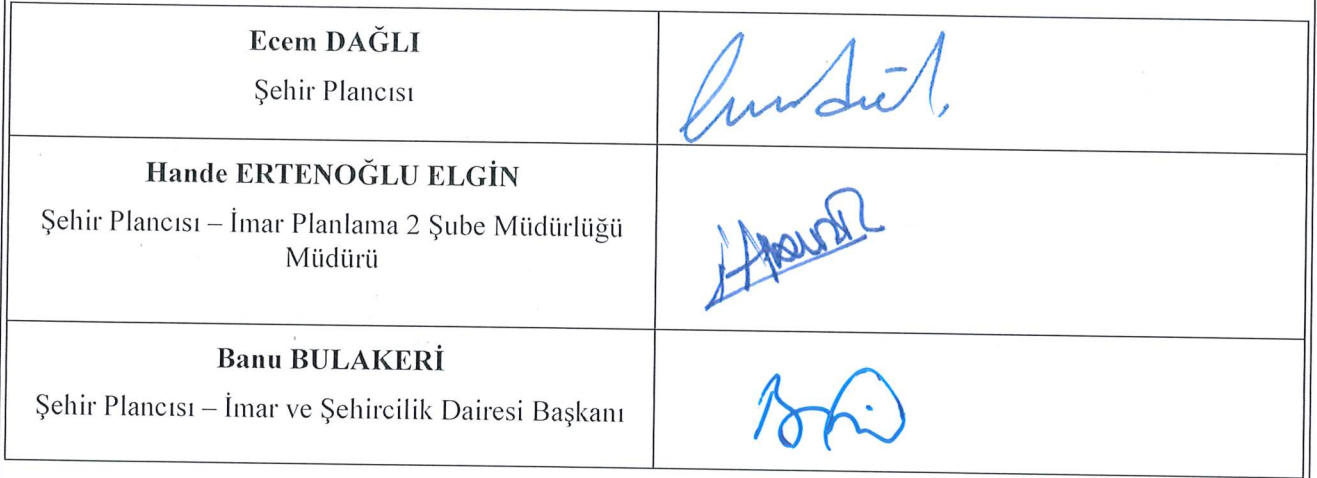 Ecem DAĞLI
Şehir Plancısı
Hande ERTENOĞLU ELGİN
Şehir Plancısı – İmar Planlama 2 Şube Müdürlüğü
Müdürü
Banu BULAKERİ
Şehir Plancısı – İmar ve Şehircilik Dairesi Başkanı